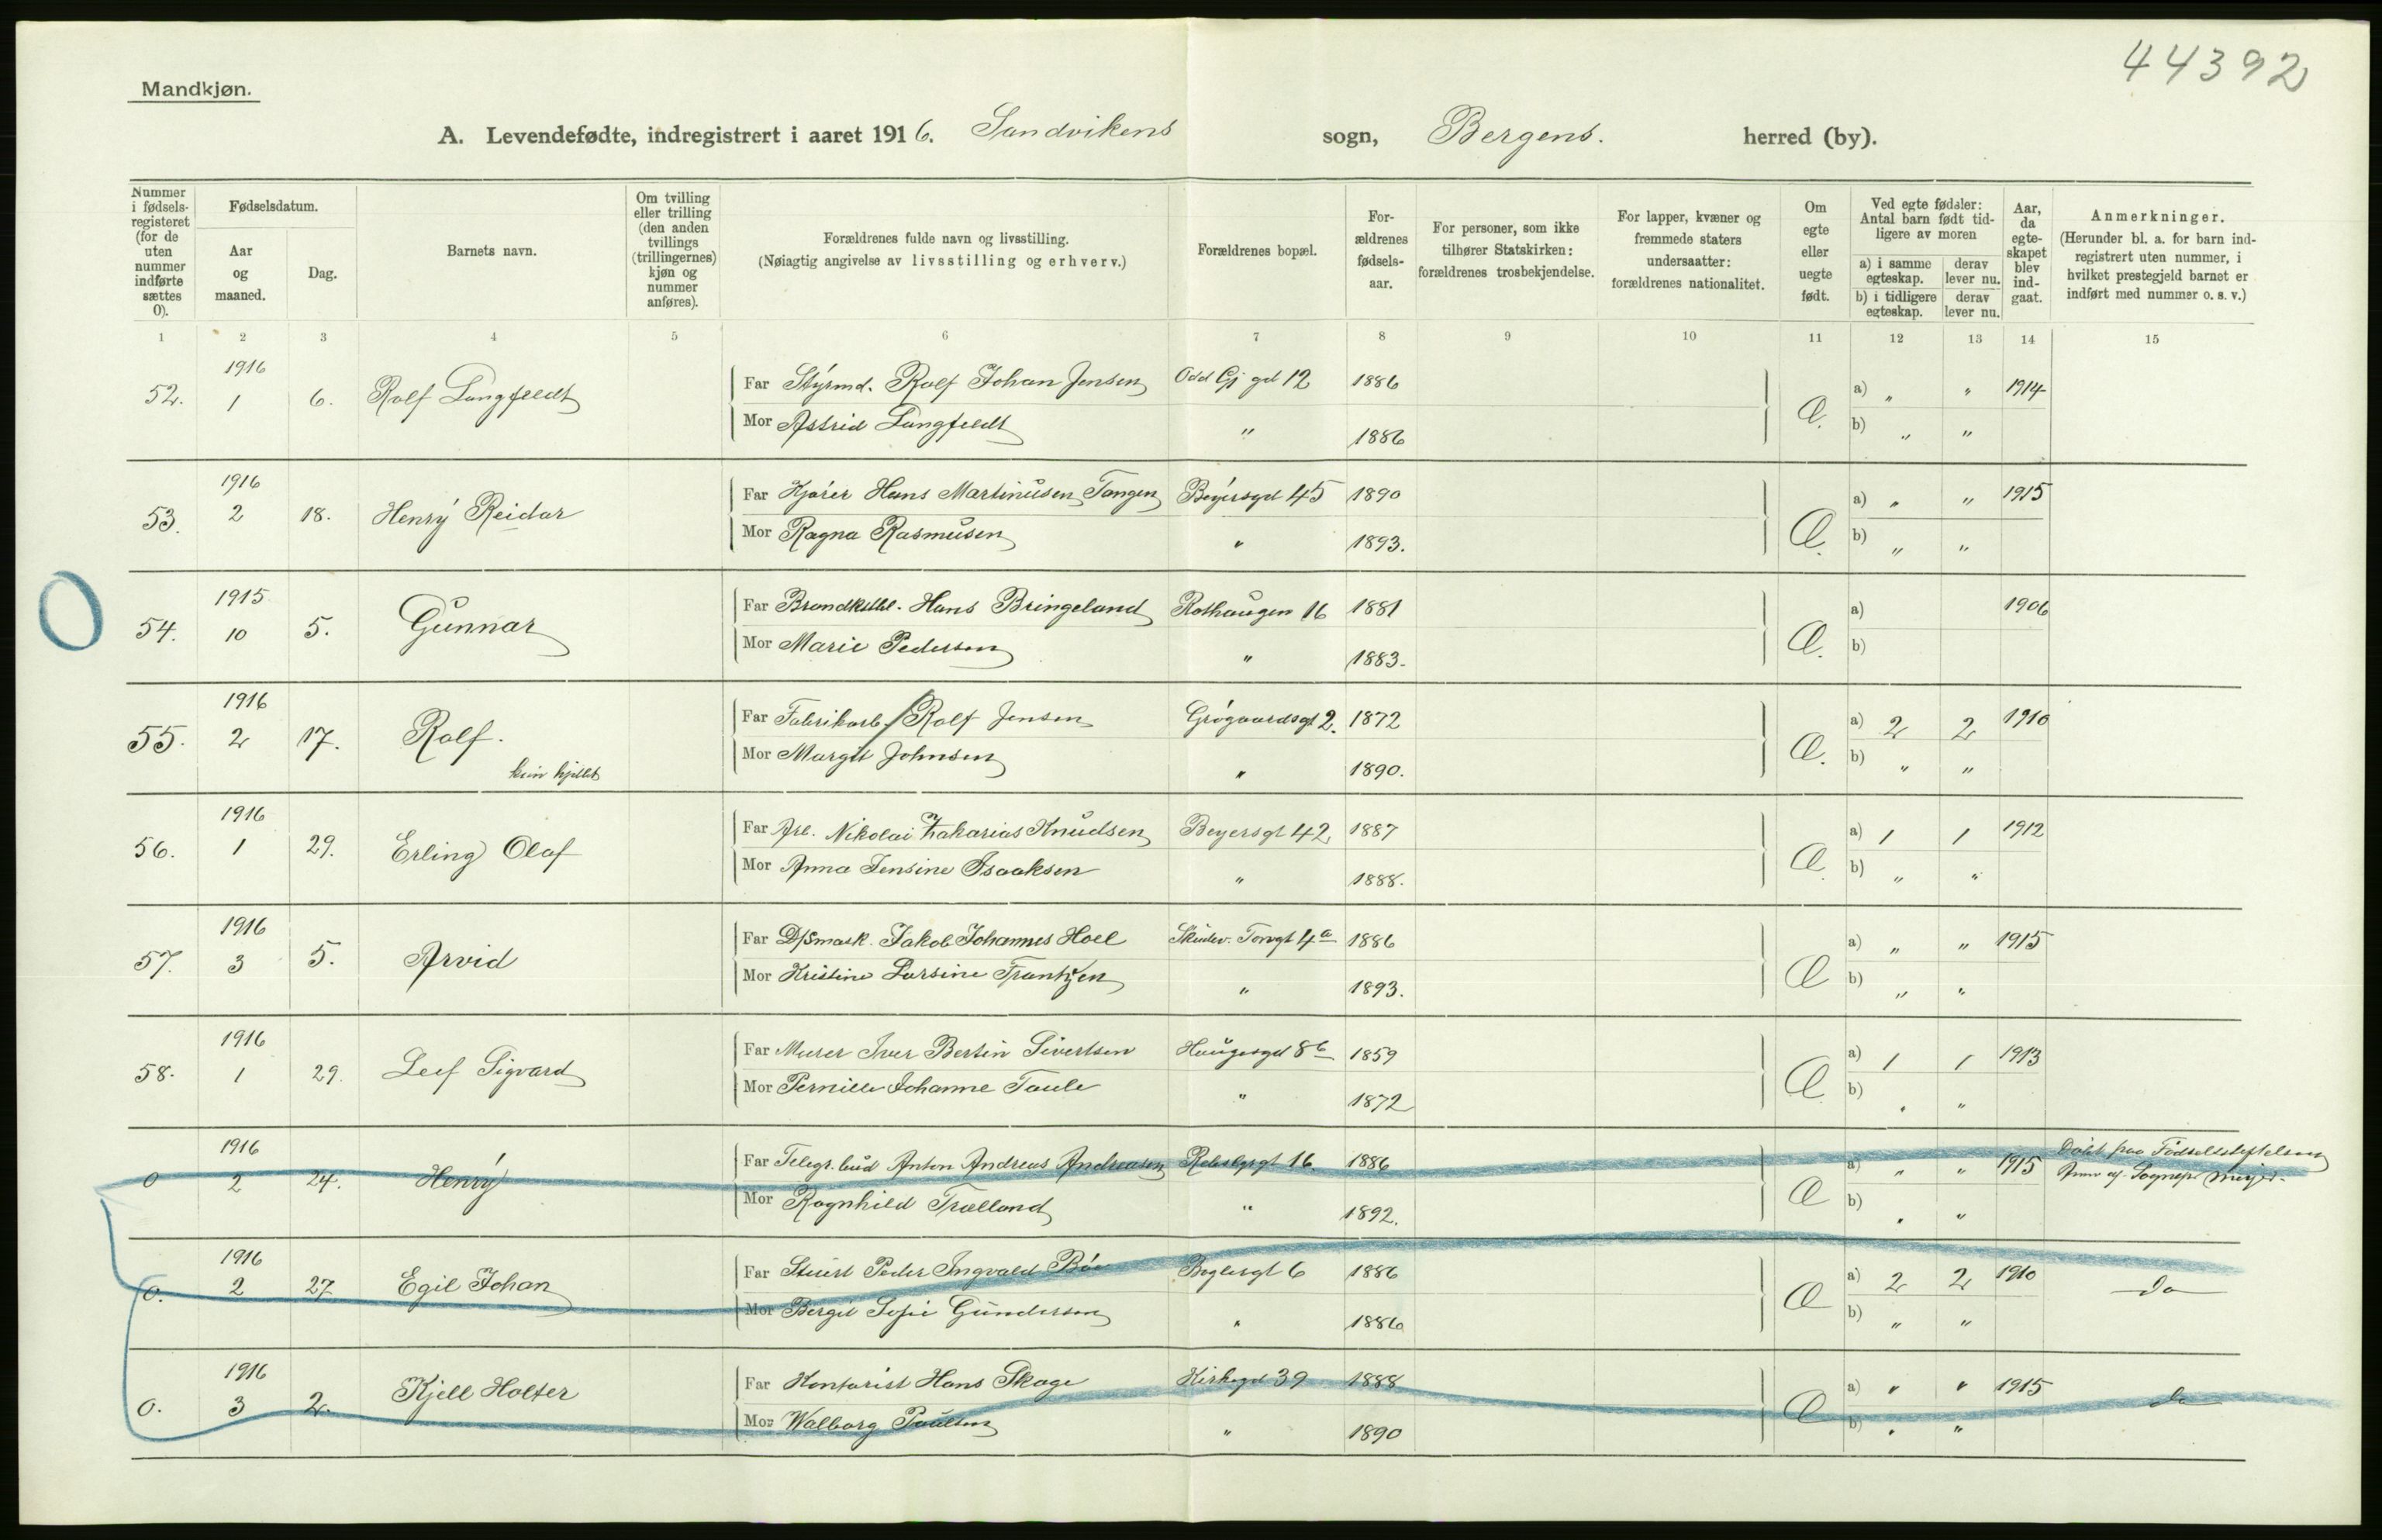 44392
Mandkjøn.
A. Levendefødte, indregistrert i aaret 1916. Sandvikens sogn, Bergens. herred (by).
Nummer i fødselsregisteret (for de uten nummer indførte sættes 0).
Fødselsdatum.
Aar og maaned.
Dag.
Barnets navn.
Om tvilling eller trilling (den anden tvillings (trillingernes) kjøn og nummer anføres).
Forældrenes fulde navn og livsstilling.
(Nøiagtig angivelse av livsstilling og erhverv.)
Forældrenes bopæl.
Forældrenes fødselsaar.
For personer, som ikke tilhører Statskirken: forældrenes trosbekjendelse.
For lapper, kvæner og fremmede staters undersaatter: forældrenes nationalitet.
Om egte eller uegte født.
Ved egte fødsler: Antal barn født tidligere av moren
a) i samme egteskap. derav lever nu.
b) i tidligere egteskap. derav lever nu.
Aar, da egteskapet blev indgaat.
Anmerkninger.
(Herunder bl. a. for barn indregistrert uten nummer, i hvilket prestegjeld barnet er indført med nummer o. s. v.)
1 2 3 4 5 6 7 8 9 10 11 12 13 14 15
52. 1916 1 6. Rolf Langfeldt Far Styrmd. Rolf Johan Jensen Odd Gj gd 12 1886 Æ. a) " " 1914
Mor Astrid Langfeldt " 1886 b) " "
53. 1916 2 18. Henry Reidar Far Kjører Hans Martinusen Tangen Beyersgd 45 1890 Æ. a) " " 1915
Mor Ragna Rasmusen " 1893. b) " "
54. 1915 10 5. Gunnar Far Hans Bringeland Rothaugen 16 1881 Æ. a) 1906
Mor Marie Pedersen " 1883. b)
55. 1916 2 17. Rolf. Far Fabrikarb. Rolf Jensen Grøgaardsgt 2. 1872 Æ. a) 2 2 1910
Mor Margit Johnsen " 1890. b) " "
56. 1916 1 29. Erling Olaf Far Arb. Nikolai Zakarias Knudsen Beyersgt 42 1887 Æ. a) 1 1 1912
Mor Anna Jensine Isaaksen " 1888. b) " "
57. 1916 3 5. Arvid Far D/Smask. Jakob Johannes Hoel Torvgt 4a 1886 Æ a) " " 1915
Mor Kristine Larsine Frantzen " 1893. b) " "
58. 1916 1 29. Leif Sigvard Far Murer Iver Bertin Sivertsen Haugesgd 8b 1859 Æ. a) 1 1 1913
Mor Pernille Johanne Taule " 1872 b) " "
0 1916 2 24. Henry Far Telegr. bud Anton Andreas Andreasen 16 1886 Æ a) " " 1915 Døbt paa
Mor Ragnhild Trælland " 1892. b) " "
0. 1916 2 27 Egil Johan Far Stuert Peder Ingvald Bøe Baglergt 6 1886 Æ a) 2 2 1910 Do
Mor Bergit Sofie Gundersen " 1886 b) " "
0. 1916 3 2. Kjell Holter Far Kontorist Hans Skage Kirkegd 39 1888 Æ a) " " 1915 Do
Mor Walborg Paulsen " 1890 b) " "